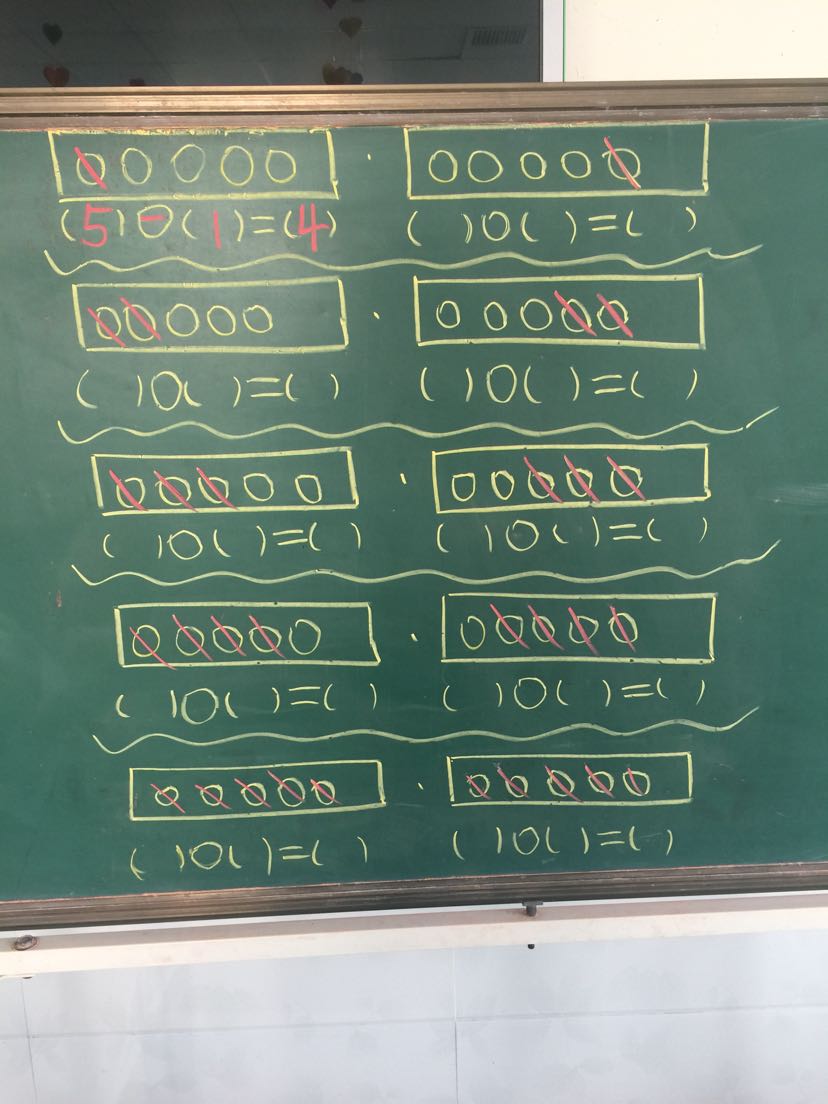 (5)⊖(1)=(4) ( )○( )=( )
( )○( )=( ) ( )○( )=( )
( )○( )=( ) ( )○( )=( )
( )○( )=( ) ( )○( )=( )
( )○( )=( ) ( )○( )=( )